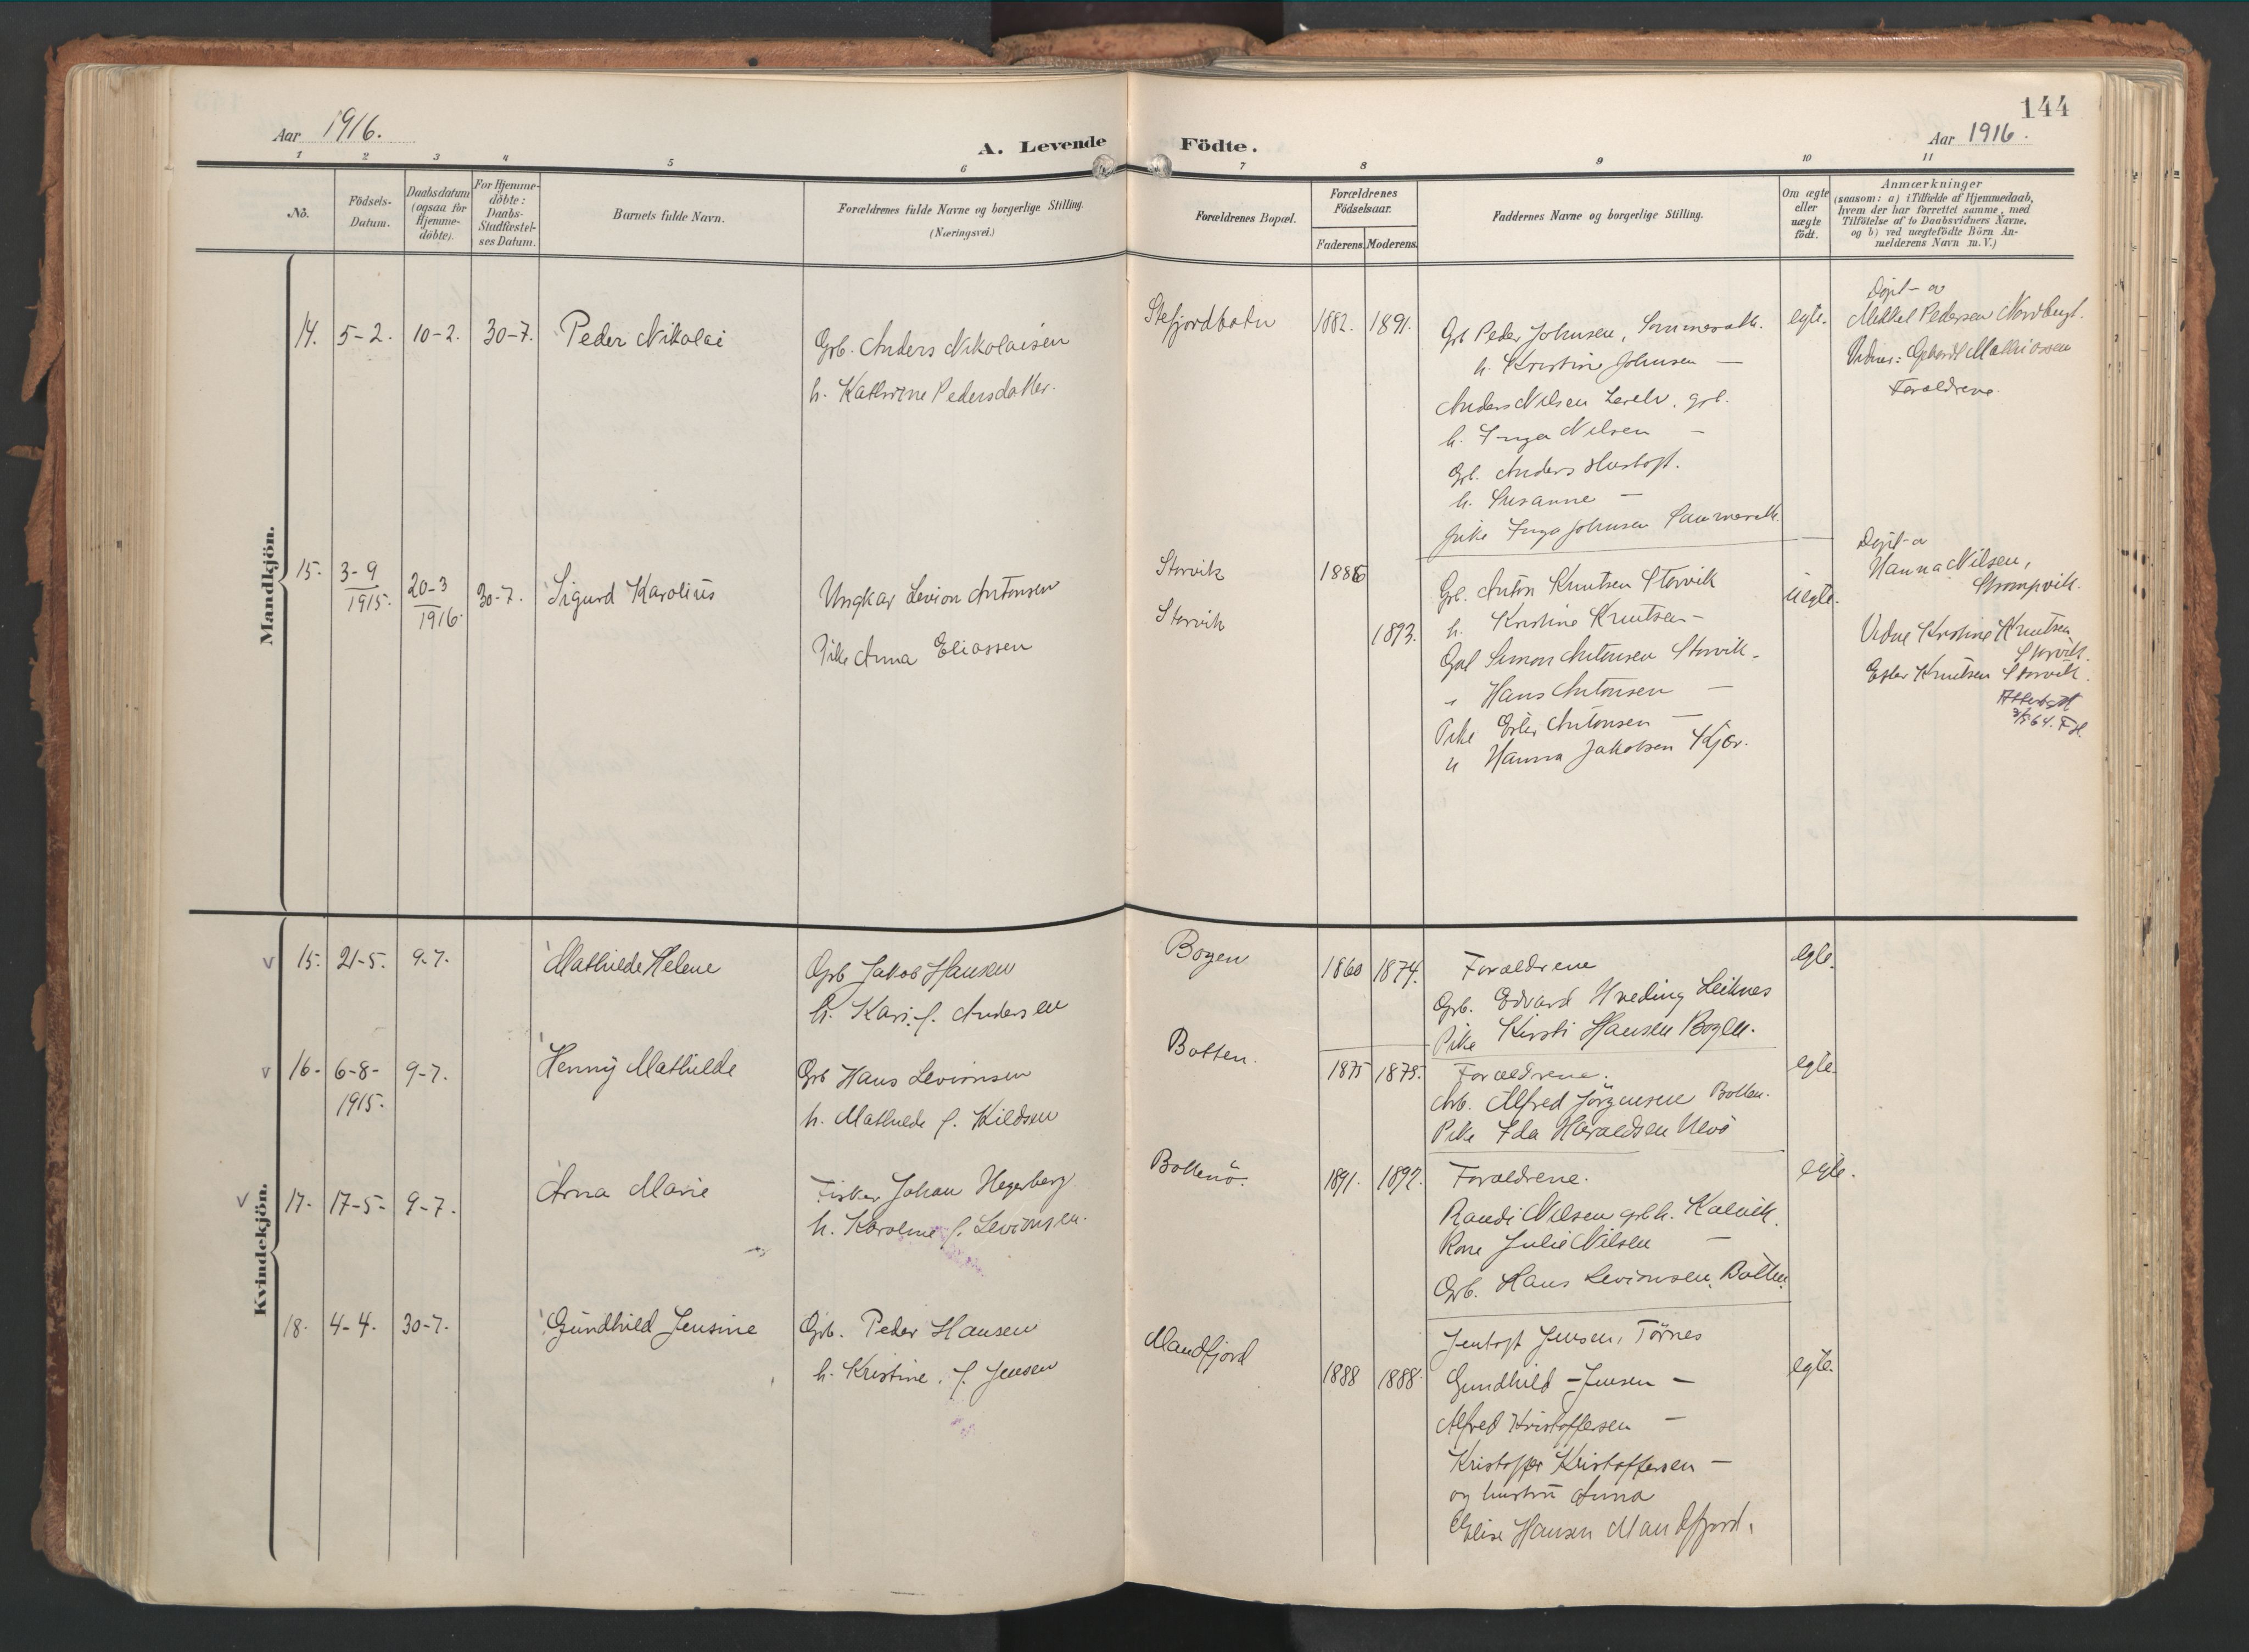 144
Aar 1916.
A. Levende Födte.
Aar 1916.
1 2 3 4 5 6 7 8 9 10 11
No.
Födsels-
Datum.
Daabsdatum
(ogsaa for
Hjemme-
döbte).
For Hjemme-
döbte:
Daabs-
Stadfæstel-
ses Datum.
Barnets fulde Navn.
Forældrenes fulde Navne og borgerlige Stilling.
(Næringsvei.)
Forældrenes Bopæl.
Forældrenes
Födselsaar.
Faderens. Moderens.
Faddernes Navne og borgerlige Stilling.
Om ægte
eller
uægte
födt.
Anmærkninger
(saasom: a) i Tilfælde af Hjemmedaab,
hvem der har forrettet samme, med
Tilföielse af to Daabsvidners Navne,
og b) ved uægtefödte Börn An-
melderens Navn m. V.)
Mandkjön.
14. 5-2. 10-2. 30-7. Peder Nikolai
Grb. Anders Nikolaisen
h. Kathrine Pedersdatter.
Stefjordbotn 1882. 1891.
Grb Peder Johnsen,
h. Kristine Johnsen —
Anders Nilsen
h. Inga Nilsen —
Grb. Anders
h. Susanne —
Pike Inga Johnsen
egte.
Døpt av
Mikkel Pedersen
Vidner: Mathiassen
Forældrene.
15. 3-9
1915.
20-3
1916.
30-7. Sigurd Karolius
Ungkar Levion Antonsen
Pike Anna Eliassen
Storvik 1886
Storvik 1893.
Grb. Anton Knutsen Storvik
h. Kristine Knutsen —
Simon Antonsen Storvik.
" Hans Antonsen —
Pike Ester Antonsen —
" Hanna Jakobsen Kjør.
uegte.
Døpt av
Hanna Nilsen,
Strompvik.
Vidne Kristine Knutsen
Storvik.
Ester Knutsen Storvik.
Kvindekjön.
v 15. 21-5. 9-7. Mathilde Helene
Grb Jakob Hansen
h. Kari f. Andersen
Bogen 1860 1874.
Forældrene
Grb. Edvard Hveding Leiknes
Pike Kirsti Hansen Bogen.
egte.
v 16. 6-8-
1915.
9-7. Henny Mathilde
Grb Hans Levionsen
h. Mathilde f. Kildsen
Botten. 1875 1875.
Forældrene.
Arb. Alfred Jörgensen Botten.
Pike Ida Haraldsen
egte.
v 17. 17-5- 9-7. Arna Marie
Fisker Johan Hegerberg
h. Karoline f. Levionsen.
Bottenö. 1891. 1892.
Forældrene.
Randi Nilsen grb.h. Kalvik.
Kone Julie Nilsen —
Grb. Hans Levionsen, Botten.
egte.
18. 4-4. 30-7. Gundhild Jensine
Grb. Peder Hansen
h. Kristine. f. Jensen
Mandfjord 1888 1888.
Jentoft Jensen, Törnes
Gundhild - Jensen —
Alfred Kristoffersen —
Kristoffer Kristoffersen —
og hustru Anna
Elise Hansen Mandfjord.
egte.